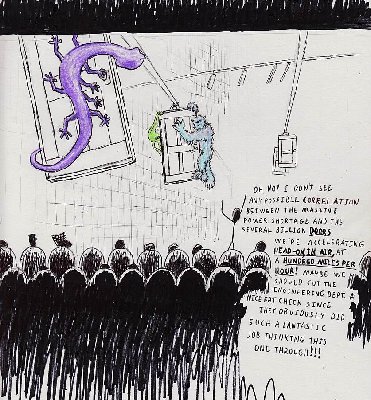 OH NO! I DON'T SEE
ANY POSSIBLE CORRELATION
BETWEEN THE MASSIVE
POWER SHORTAGE AND THE
SEVERAL BILLION DOORS
WE'RE ACCELERATING
HEAD-ON IN AIR, AT
A HUNDRED MILES PER
HOUR! MAYBE WE
SHOULD CUT THE
ENGINEERING DEPT. A
NICE FAT CHECK SINCE
THEY OBVIOUSLY DID
SUCH A FANTASTIC
JOB THINKING THIS
ONE THROUGH!!!